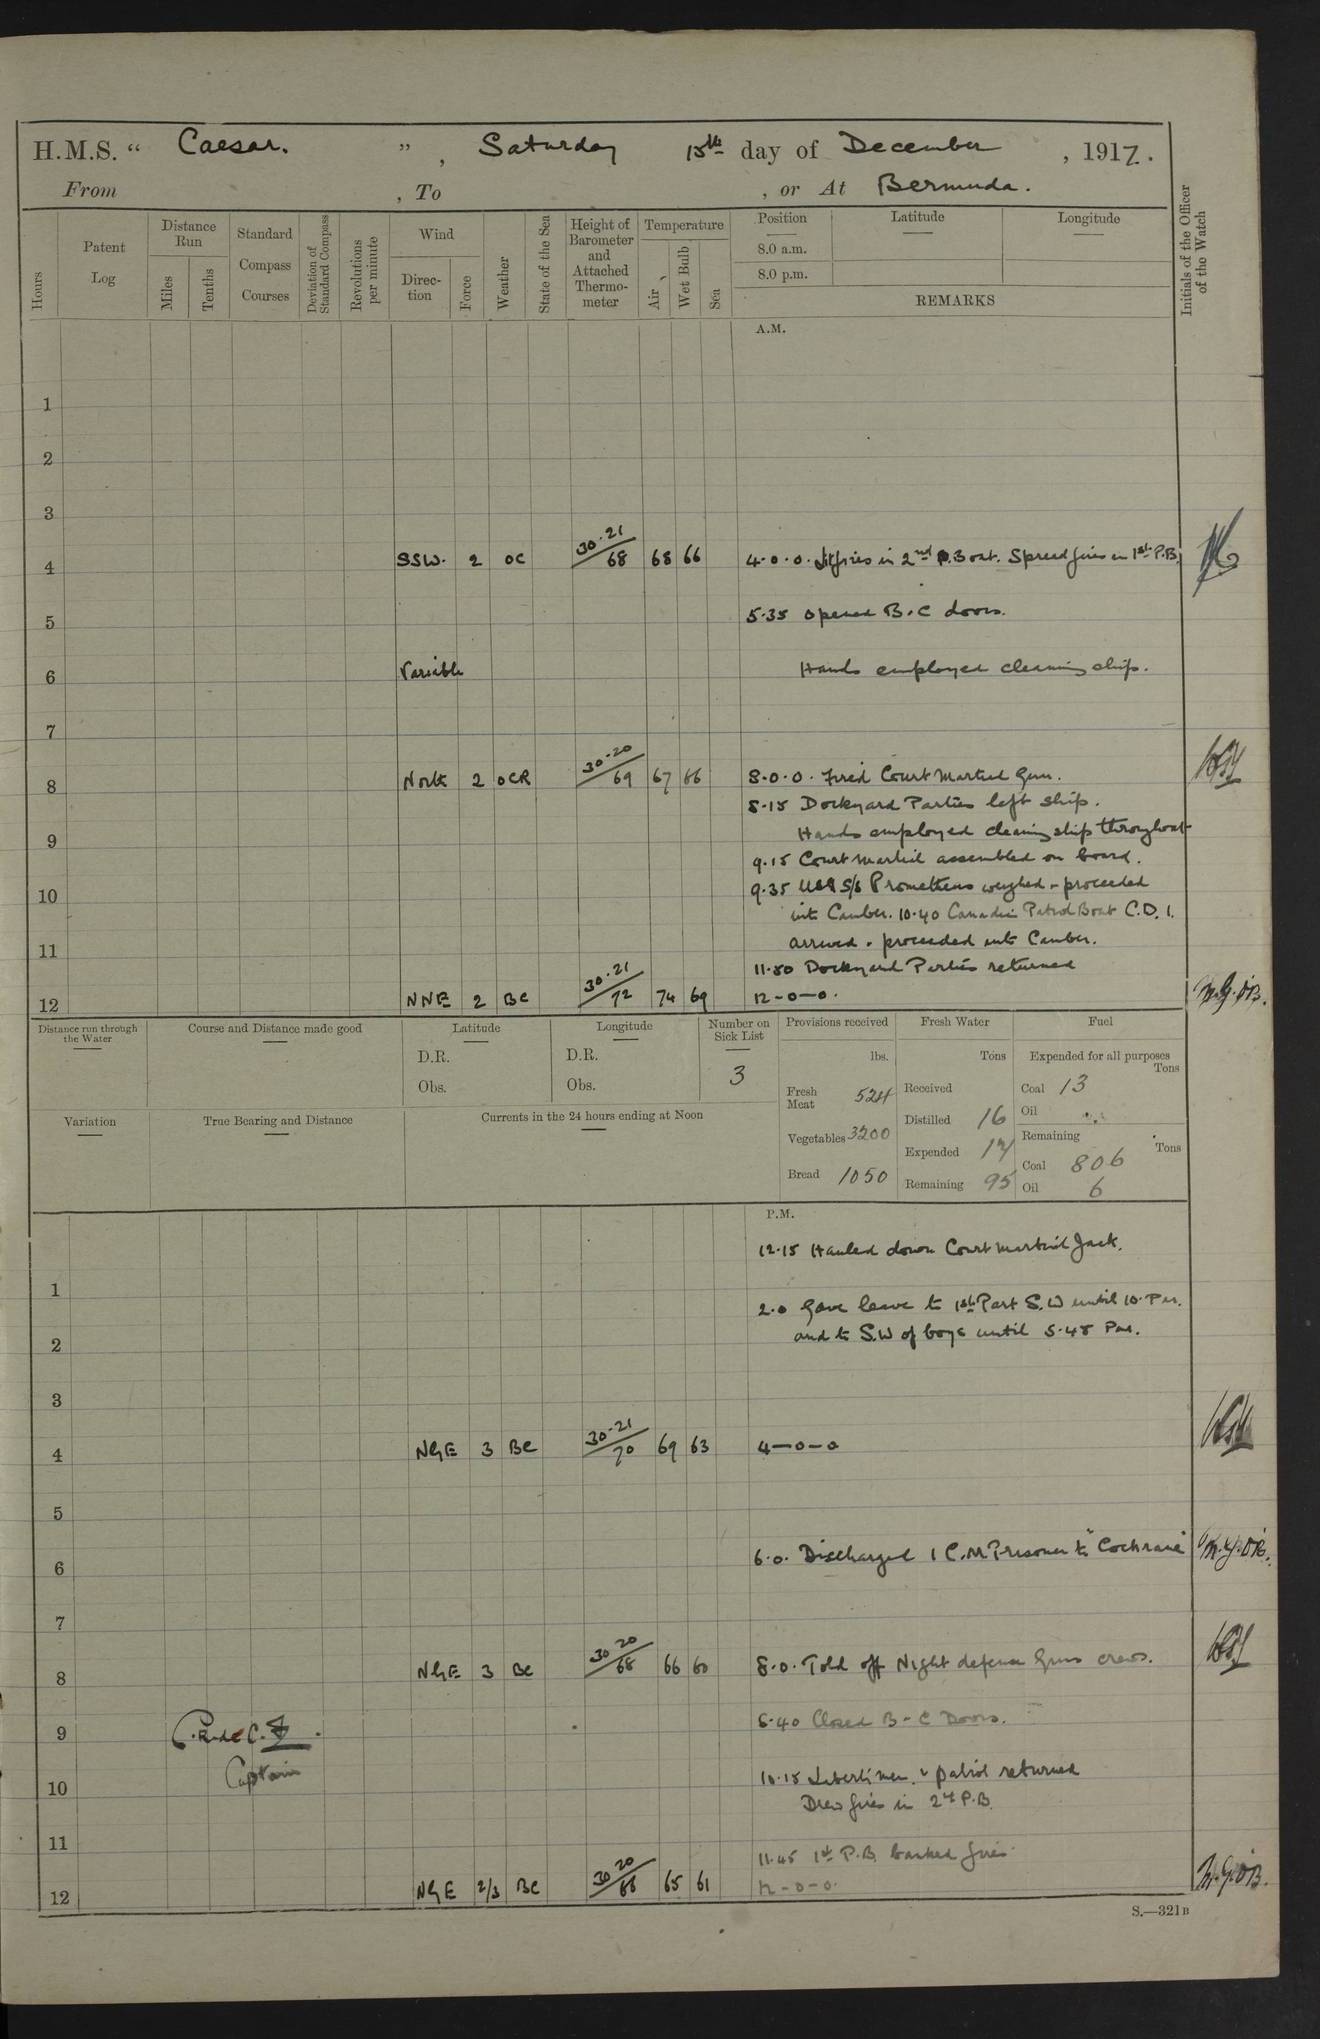 H.M.S. “ Caesar. ” , Saturday 15th day of December , 1917.
From , To , or At Bermuda.
Hours
Patent Log
Distance Run
Miles
Tenths
Standard Compass Courses
Deviation of Standard Compass
Revolutions per minute
Wind
Direction
Force
Weather
State of the Sea
Height of Barometer and Attached Thermometer
Temperature
Air
Wet Bulb
Sea
Position
8.0 a.m.
8.0 p.m.
Latitude
Longitude
REMARKS
Initials of the Officer of the Watch
A.M.
1
2
3
4 SSW. 2 OC 30.21/68 68 66 4.0.0. Lit fires in 2nd P.Boat. Spread fires in 1st P.B.
5 5.35 Opened B.C doors.
6 Variable Hands employed cleaning ship.
7
8 North 2 OCR 30.20/69 67 66 8.0.0. Fired Court Martial Gun.
8.15 Dockyard Parties left ship.
9 Hands employed cleaning ship throughout
9.15 Court Martial assembled on board.
10 9.35 S/S Prometheus weighed & proceeded
into Camber. 10.40 Canadian Patrol Boat C.D. 1.
11 arrived & proceeded into Camber.
11.50 Dockyard Parties returned
12 NNE 2 BC 30.21/72 74 69 12-0-0. M.G. O'B.
Distance run through the Water
Course and Distance made good
Latitude
D.R.
Obs.
Longitude
D.R.
Obs.
Number on Sick List
3
Provisions received
lbs.
Fresh Meat 524
Vegetables 3200
Bread 1050
Fresh Water
Tons
Received
Distilled 16
Expended 17
Remaining 95
Fuel
Expended for all purposes
Tons
Coal 13
Oil
Remaining
Tons
Coal 806
Oil 6
Variation
True Bearing and Distance
Currents in the 24 hours ending at Noon
P.M.
12.15 Hauled down Court Martial Jack.
1
2.0 Gave leave to 1st Part S.W until 10. P.M.
2 and to S.W of boys until 5.45 P.M.
3
4 NBE 3 BC 30.21/70 69 63 4-0-0
5
6 6.0. Discharged 1 C.M Prisoner to "Cochrane" M.G. O'B.
7
8 NBE 3 BC 30 20/68 66 60 8.0. Told off Night defence Guns crews.
9 8.40 Closed B-C Doors.
Captain
10 10.15 Liberty men & patrol returned
Drew fires in 2nd P.B.
11 11.45 1st P.B. banked fires
12 NBE 2/3 BC 30 20/66 65 61 12-0-0. M.G. O'B.
S.—321B